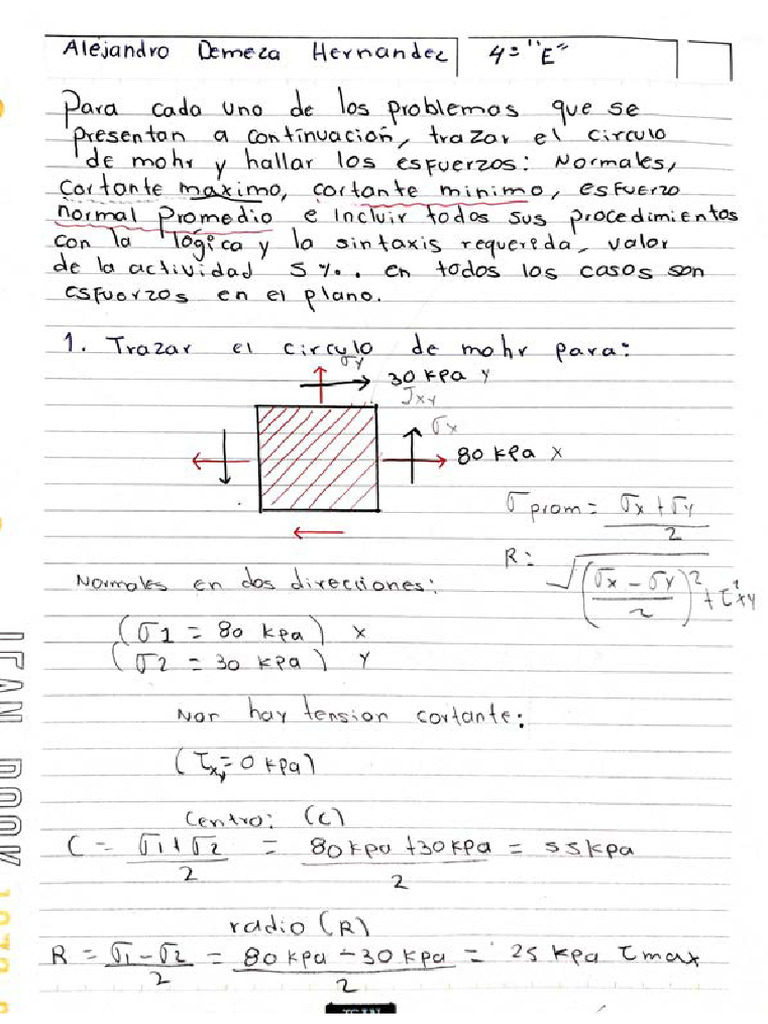 Alejandro Demeza Hernandez 4= "E"
Para cada uno de los problemas que se
presentan a continuación, trazar el circulo
de mohr y hallar los esfuerzos: Normales,
cortante maximo, cortante minimo, esfuerzo
normal Promedio e incluir todos sus procedimientos
con la lógica y la sintaxis requereda, valor
de la actividad 5%. en todos los casos son
esfuorzos en el plano.
1. Trazar el circulo de mohr para:
σy
30 kpa y
Jxy
σx
80 kpa x
σprom = σx + σy / 2
R: √(σx - σy / 2)² + τ²xy
Normales en dos direcciones:
(σ1 = 80 kpa) x
(σ2 = 30 kpa) y
Nor hay tension cortante:
(τxy = 0 kpa)
Centro: (C)
C = σ1 + σ2 / 2 = 80 kpa + 30 kpa / 2 = 55 kpa
radio (R)
R = σ1 - σ2 / 2 = 80 kpa - 30 kpa / 2 = 25 kpa τmax